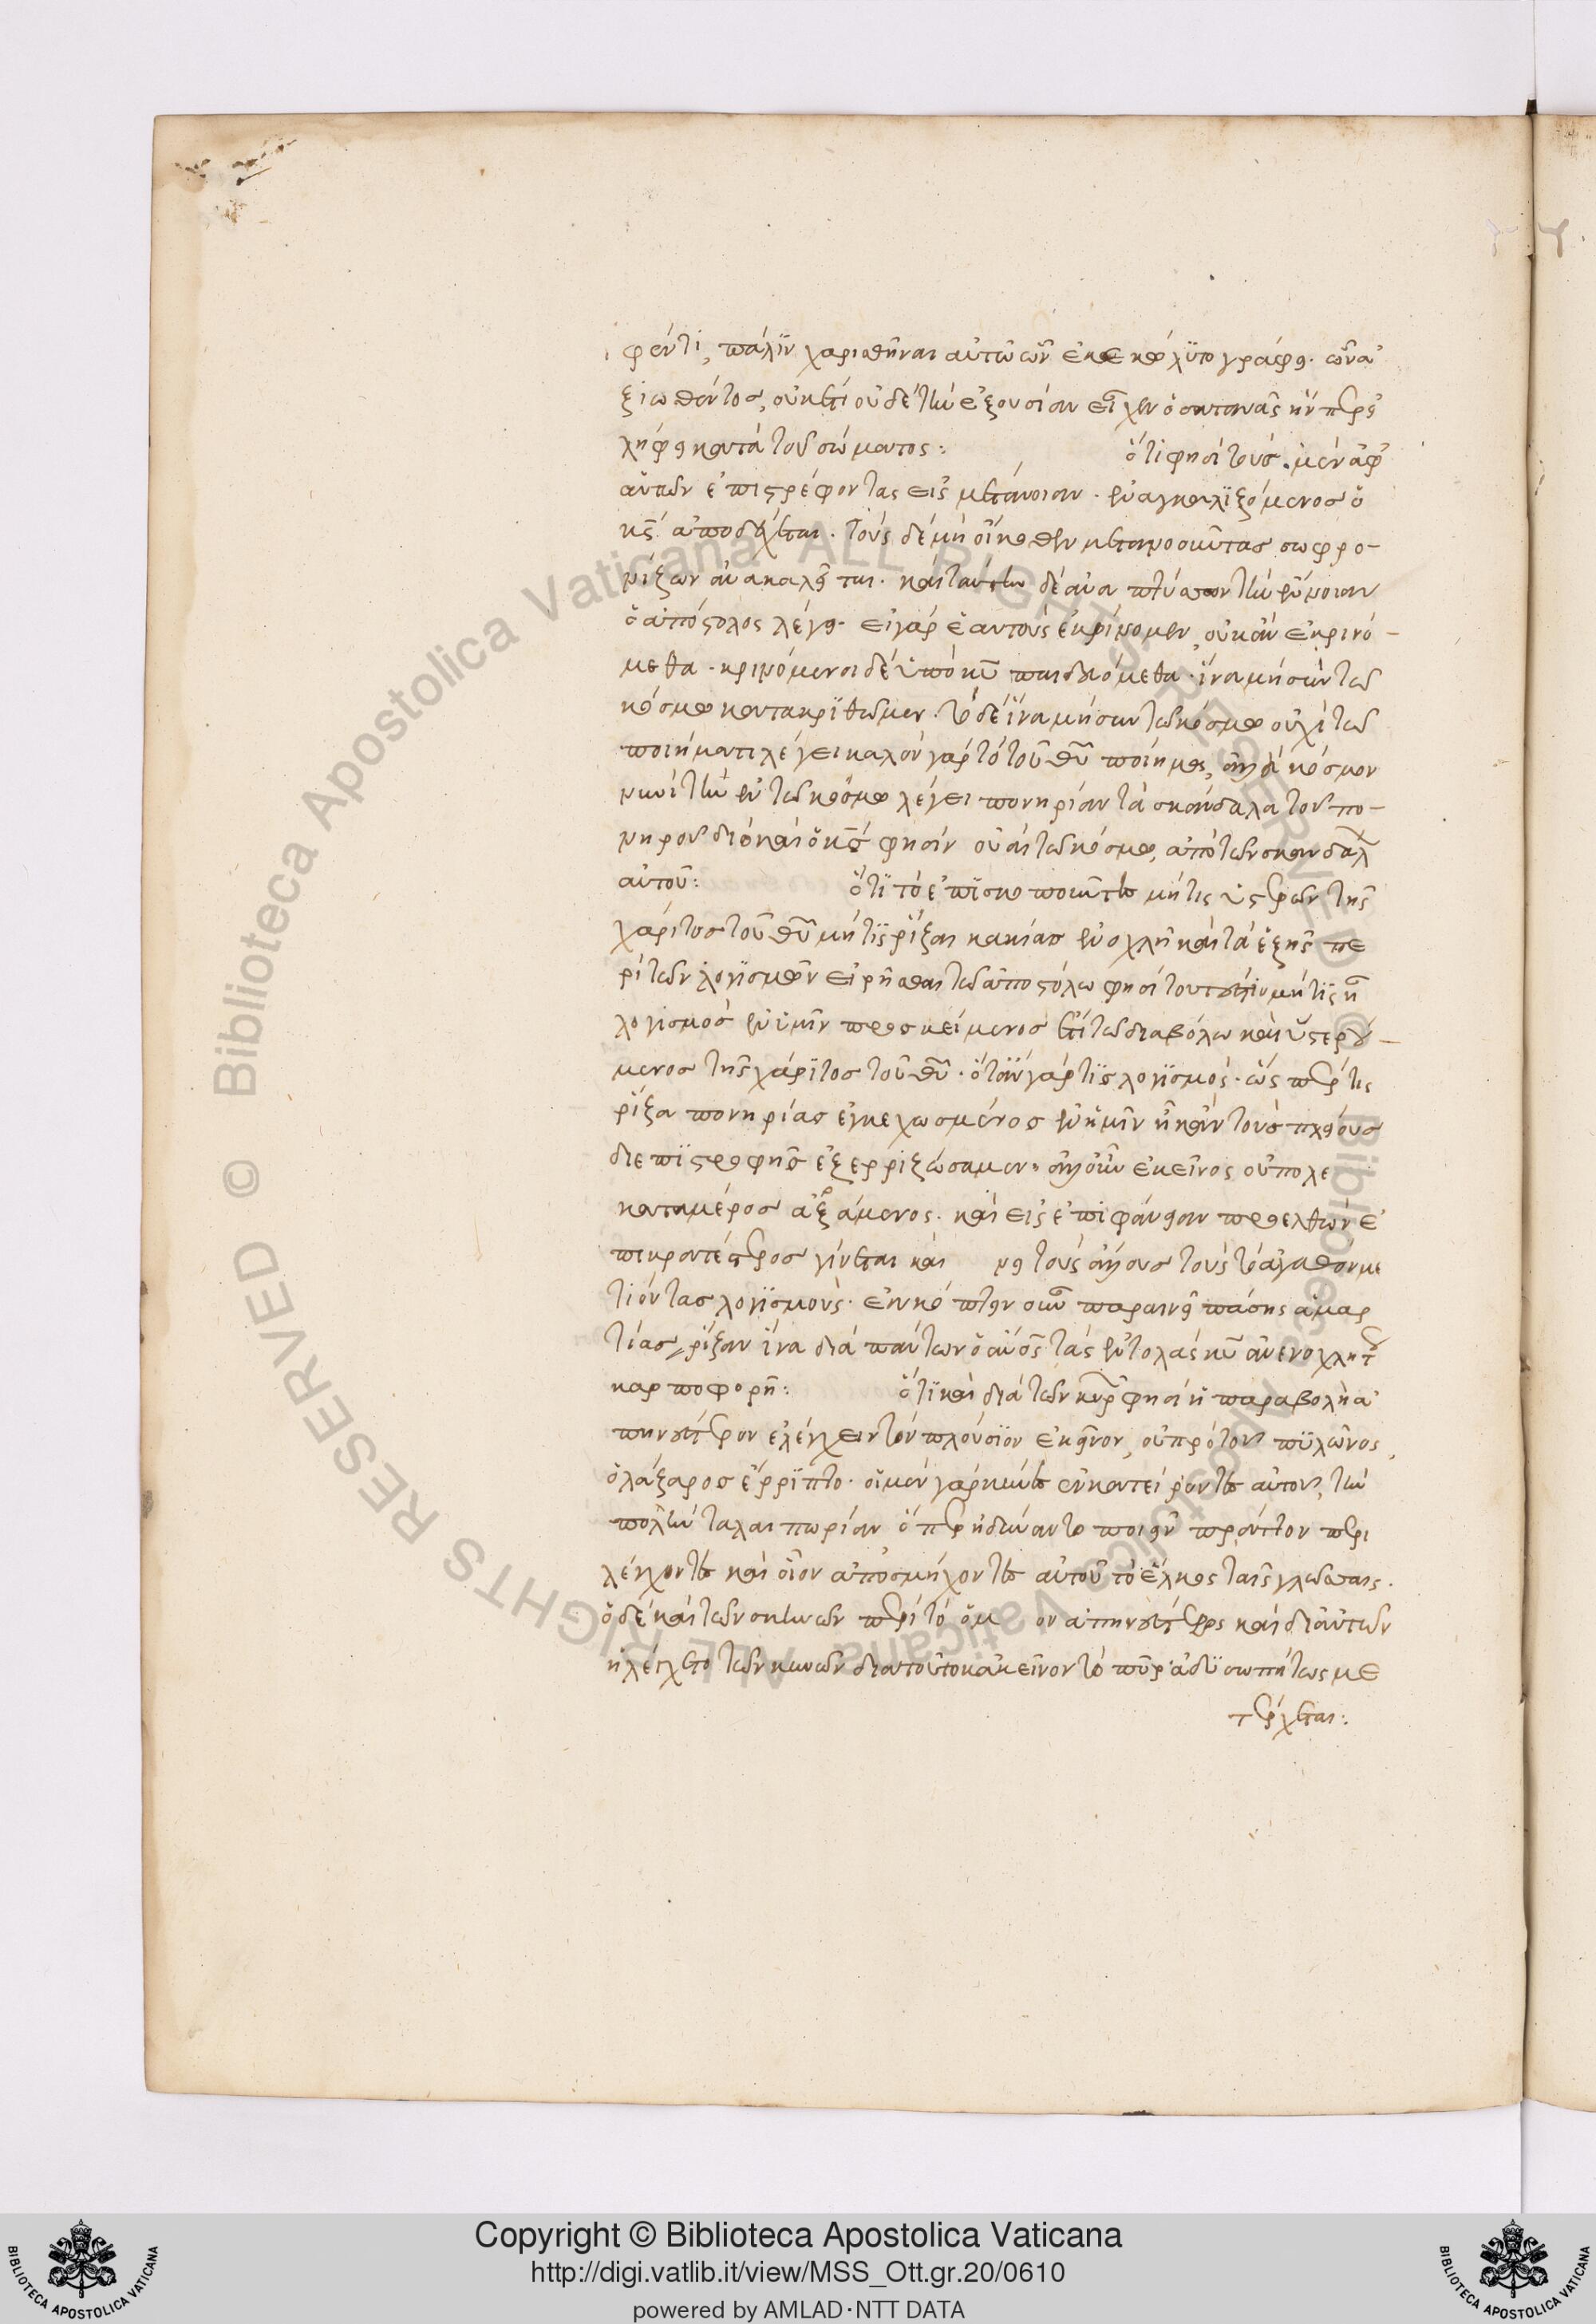 φέντι, πάλϊν χαρισθῆναι αὐτῶ ὧν ἐκεκόλϋτο γράφει. ὧν ἀ
ξιωθέντος, οὐκέτι οὐδὲ τὴν ἐξουσίαν εἶχεν ὁ σατανᾶς ἣν
κατὰ τοῦ σώματος: ὅτι φησὶ τοὺς μὲν ἀφ'
ἐπιστρέφοντας εἰς μετάνοιαν. εὐαγγελϊζόμενος ὁ
κς ἀποδέχεται. τοὺς δὲ μὴ οἴκοθεν μετανοοῦντας σωφρο-
νίζων ἀνακαλεῖται. καὶ ταύτην δὲ ἀναπτύσσων τὴν εὔνοιαν
ὁ ἀπόστολος λέγει. εἰ γὰρ ἑαυτοὺς ἐκρίνομεν, οὐκ ἂν ἐκρινό-
μεθα. κρινόμενοι δὲ ὑπὸ κυ παιδευόμεθα. ἵνα μὴ σὺν τῶ
κόσμω κατακρϊθῶμεν. τὸ δὲ ἵνα μὴ σὺν τῶ κόσμω οὐχὶ τῶ
ποιήματι λέγει καλὸν γὰρ τὸ τοῦ θυ ποίημα, ἀλλὰ κόσμον
νῦν τὴν ἐν τῶ κόσμω λέγει πονηρίαν τὰ σκάνδαλα τοῦ πο-
νηροῦ διὸ καὶ ὁ κς φησὶν οὐαὶ τῶ κόσμω, ἀπὸ τῶν σκανδάλ
αὐτοῦ: ὅτϊ τὸ ἐπϊσκοποῦντες μή τις ὑστερῶν τῆς
χάριτος τοῦ θυ μή τϊς ῥίζαι κακίας ἐνοχλῆ καὶ τὰ ἑξῆς πε
ρὶ τῶν λογϊσμῶν εἰρῆσθαι τῶ ἀποστόλω φησὶ τουτέστϊν μή τϊς ἦ
λογισμὸς ἐν ὑμῖν προσκείμενος ἔτι τῶ διαβόλω καὶ ὑστερού-
μενος τῆς χάρϊτος τοῦ θυ. ὅταν γάρ τϊς λογϊσμός. ὥσπερ τις
ῥίζα πονηρίας ἐγκεχωσμένος ἐν ἡμῖν ἦ κἂν τοὺς πλείους
δι' ἐπϊστροφῆς ἐξερριζώσαμεν. ἀλλ' οὖν ἐκεῖνος οὔπολε
κατὰ μέρος ἀρξάμενος. καὶ εἰς ἐπϊφάνειαν προελθὼν ἐ
πικρατέστερος γίνεται καὶ νει τοὺς ἄλλους τοὺς τὸ ἀγαθὸν με
τιόντας λογϊσμούς. ἐκκόπτειν οὖν παραινεῖ πάσης ἁμαρ
τίας ῥίζαν ἵνα διὰ πάντων ὁ ἄνος τὰς ἐντολὰς κυ ἀνενοχλήτ
καρποφορῆ: ὅτϊ καὶ διὰ τῶν κυνῶν φησὶν ἡ παραβολὴ ἀ
πηνέστερον ἐλέγχειν τὸν πλούσϊον ἐκεῖνον, οὗ πρὸ τοῦ πϋλῶνος,
ὁ λάζαρος ἔρρϊπτο. οἱ μὲν γὰρ κύνες ᾤκατείροντες αὐτοῦ, τὴν
πολλὴν ταλαιπωρίαν ὅπερ ἠδύναντο ποιεῖν πράττον περι
λείχοντες καὶ οἷον ἀποσμήχοντες αὐτοῦ τὸ ἕλκος ταῖς γλώσσαις.
ὁ δὲ καὶ τῶν κυνῶν περὶ τὸ ὅμ ον ἀπηνέστερος καὶ δι' αὐτῶν
ἠλέγχετο τῶν κυνῶν διατοῦτο κἀκεῖνον τὸ πῦρ ἀδϋσωπήτως με
τέρχεται: